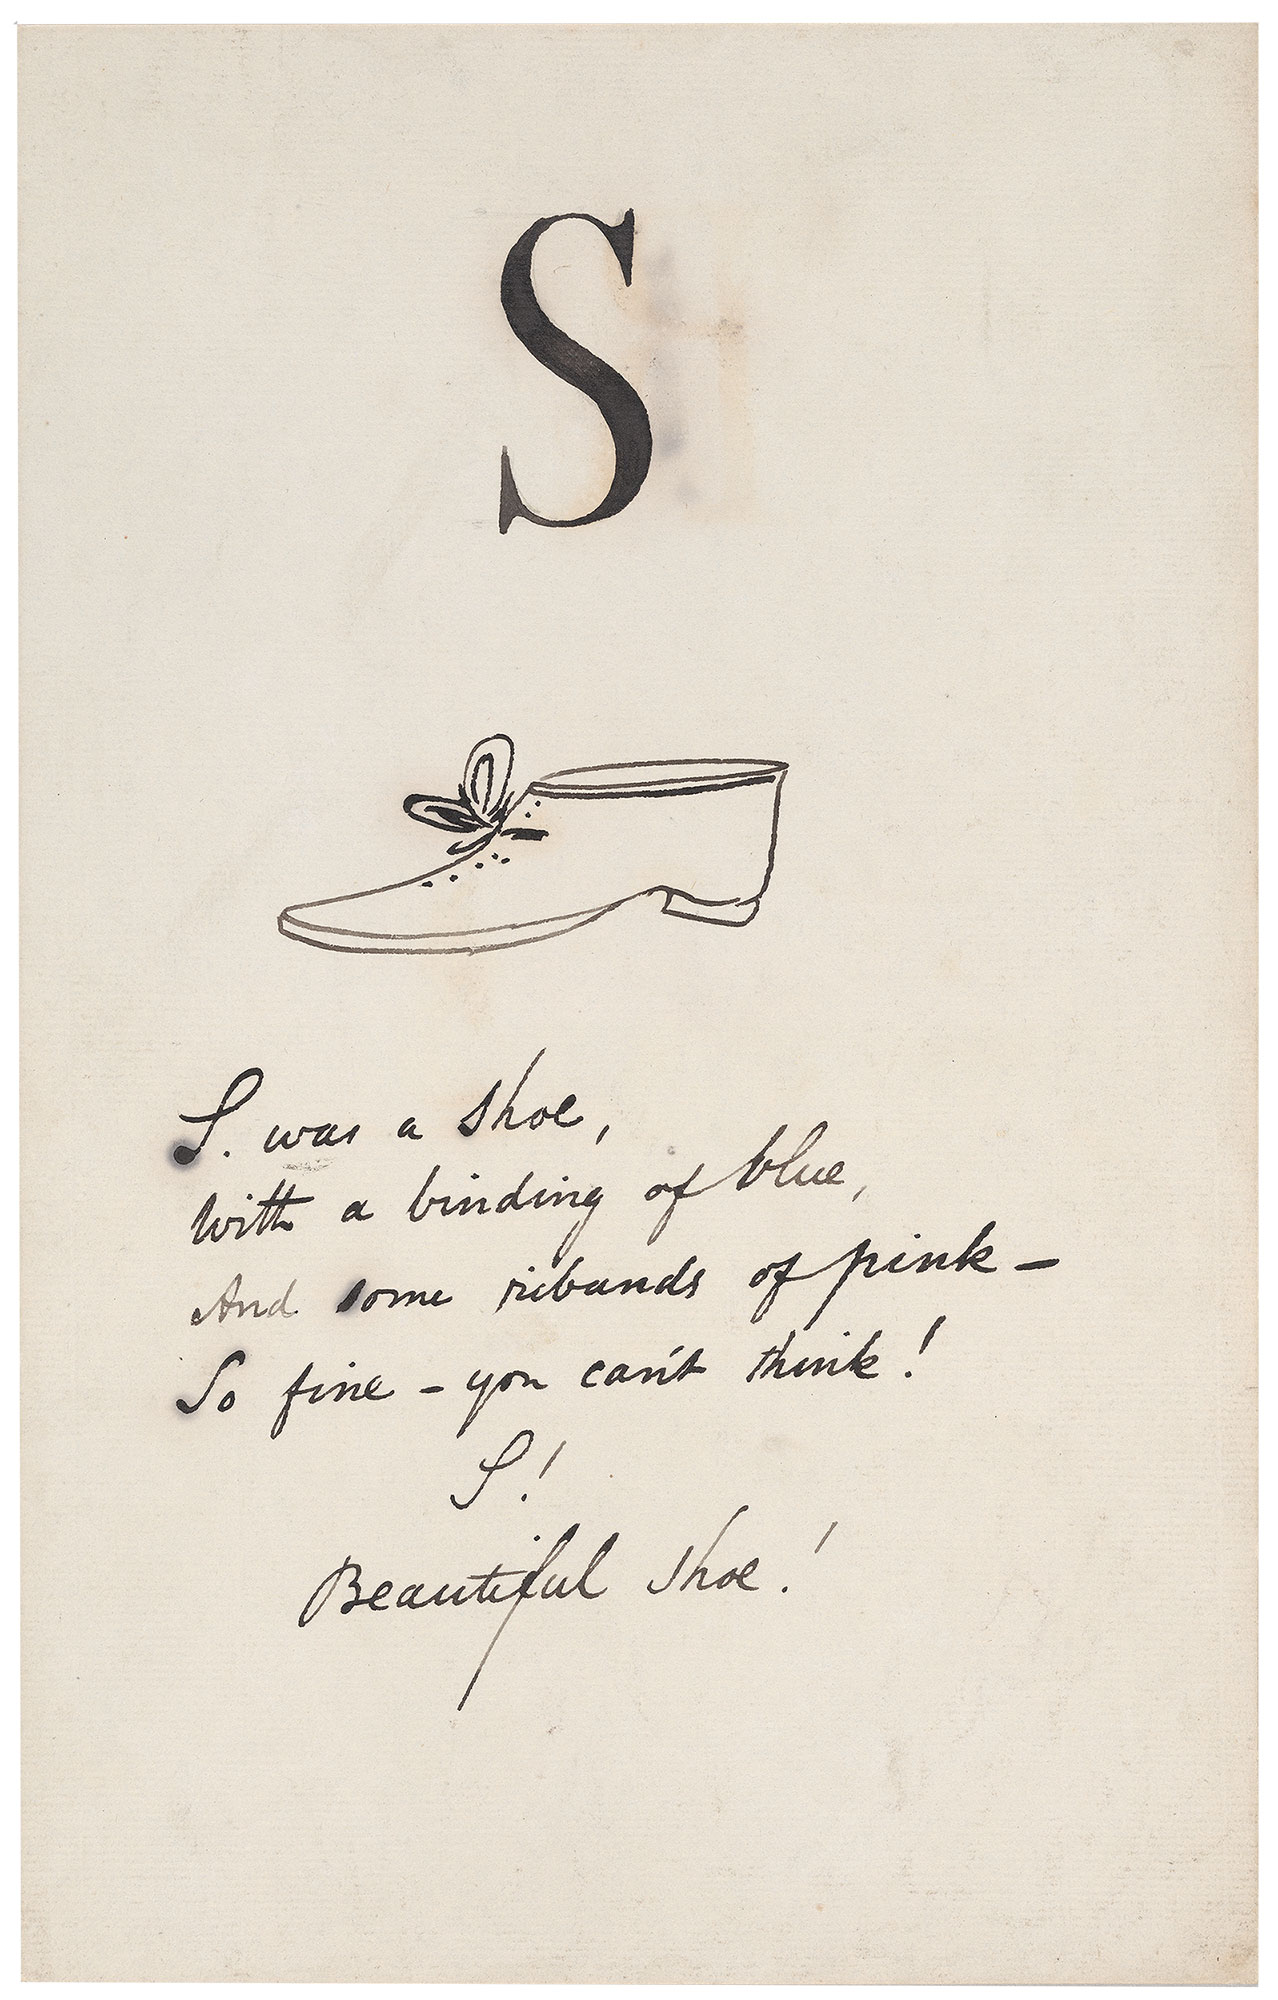 S
S. was a shoe,
With a binding of blue,
And some ribands of pink –
So fine – you can't think!
S!
Beautiful shoe!